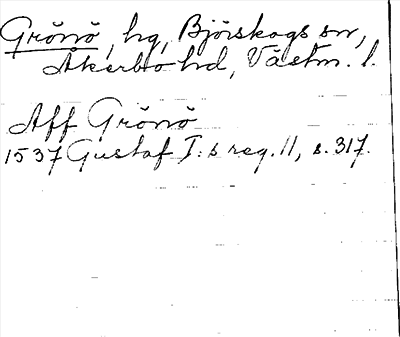 Grönö, hg, Björskogs sn,
Åkerbo hd, Västm. l.
Aff Grönö
1537 Gustaf I:s reg. 11, s. 317.